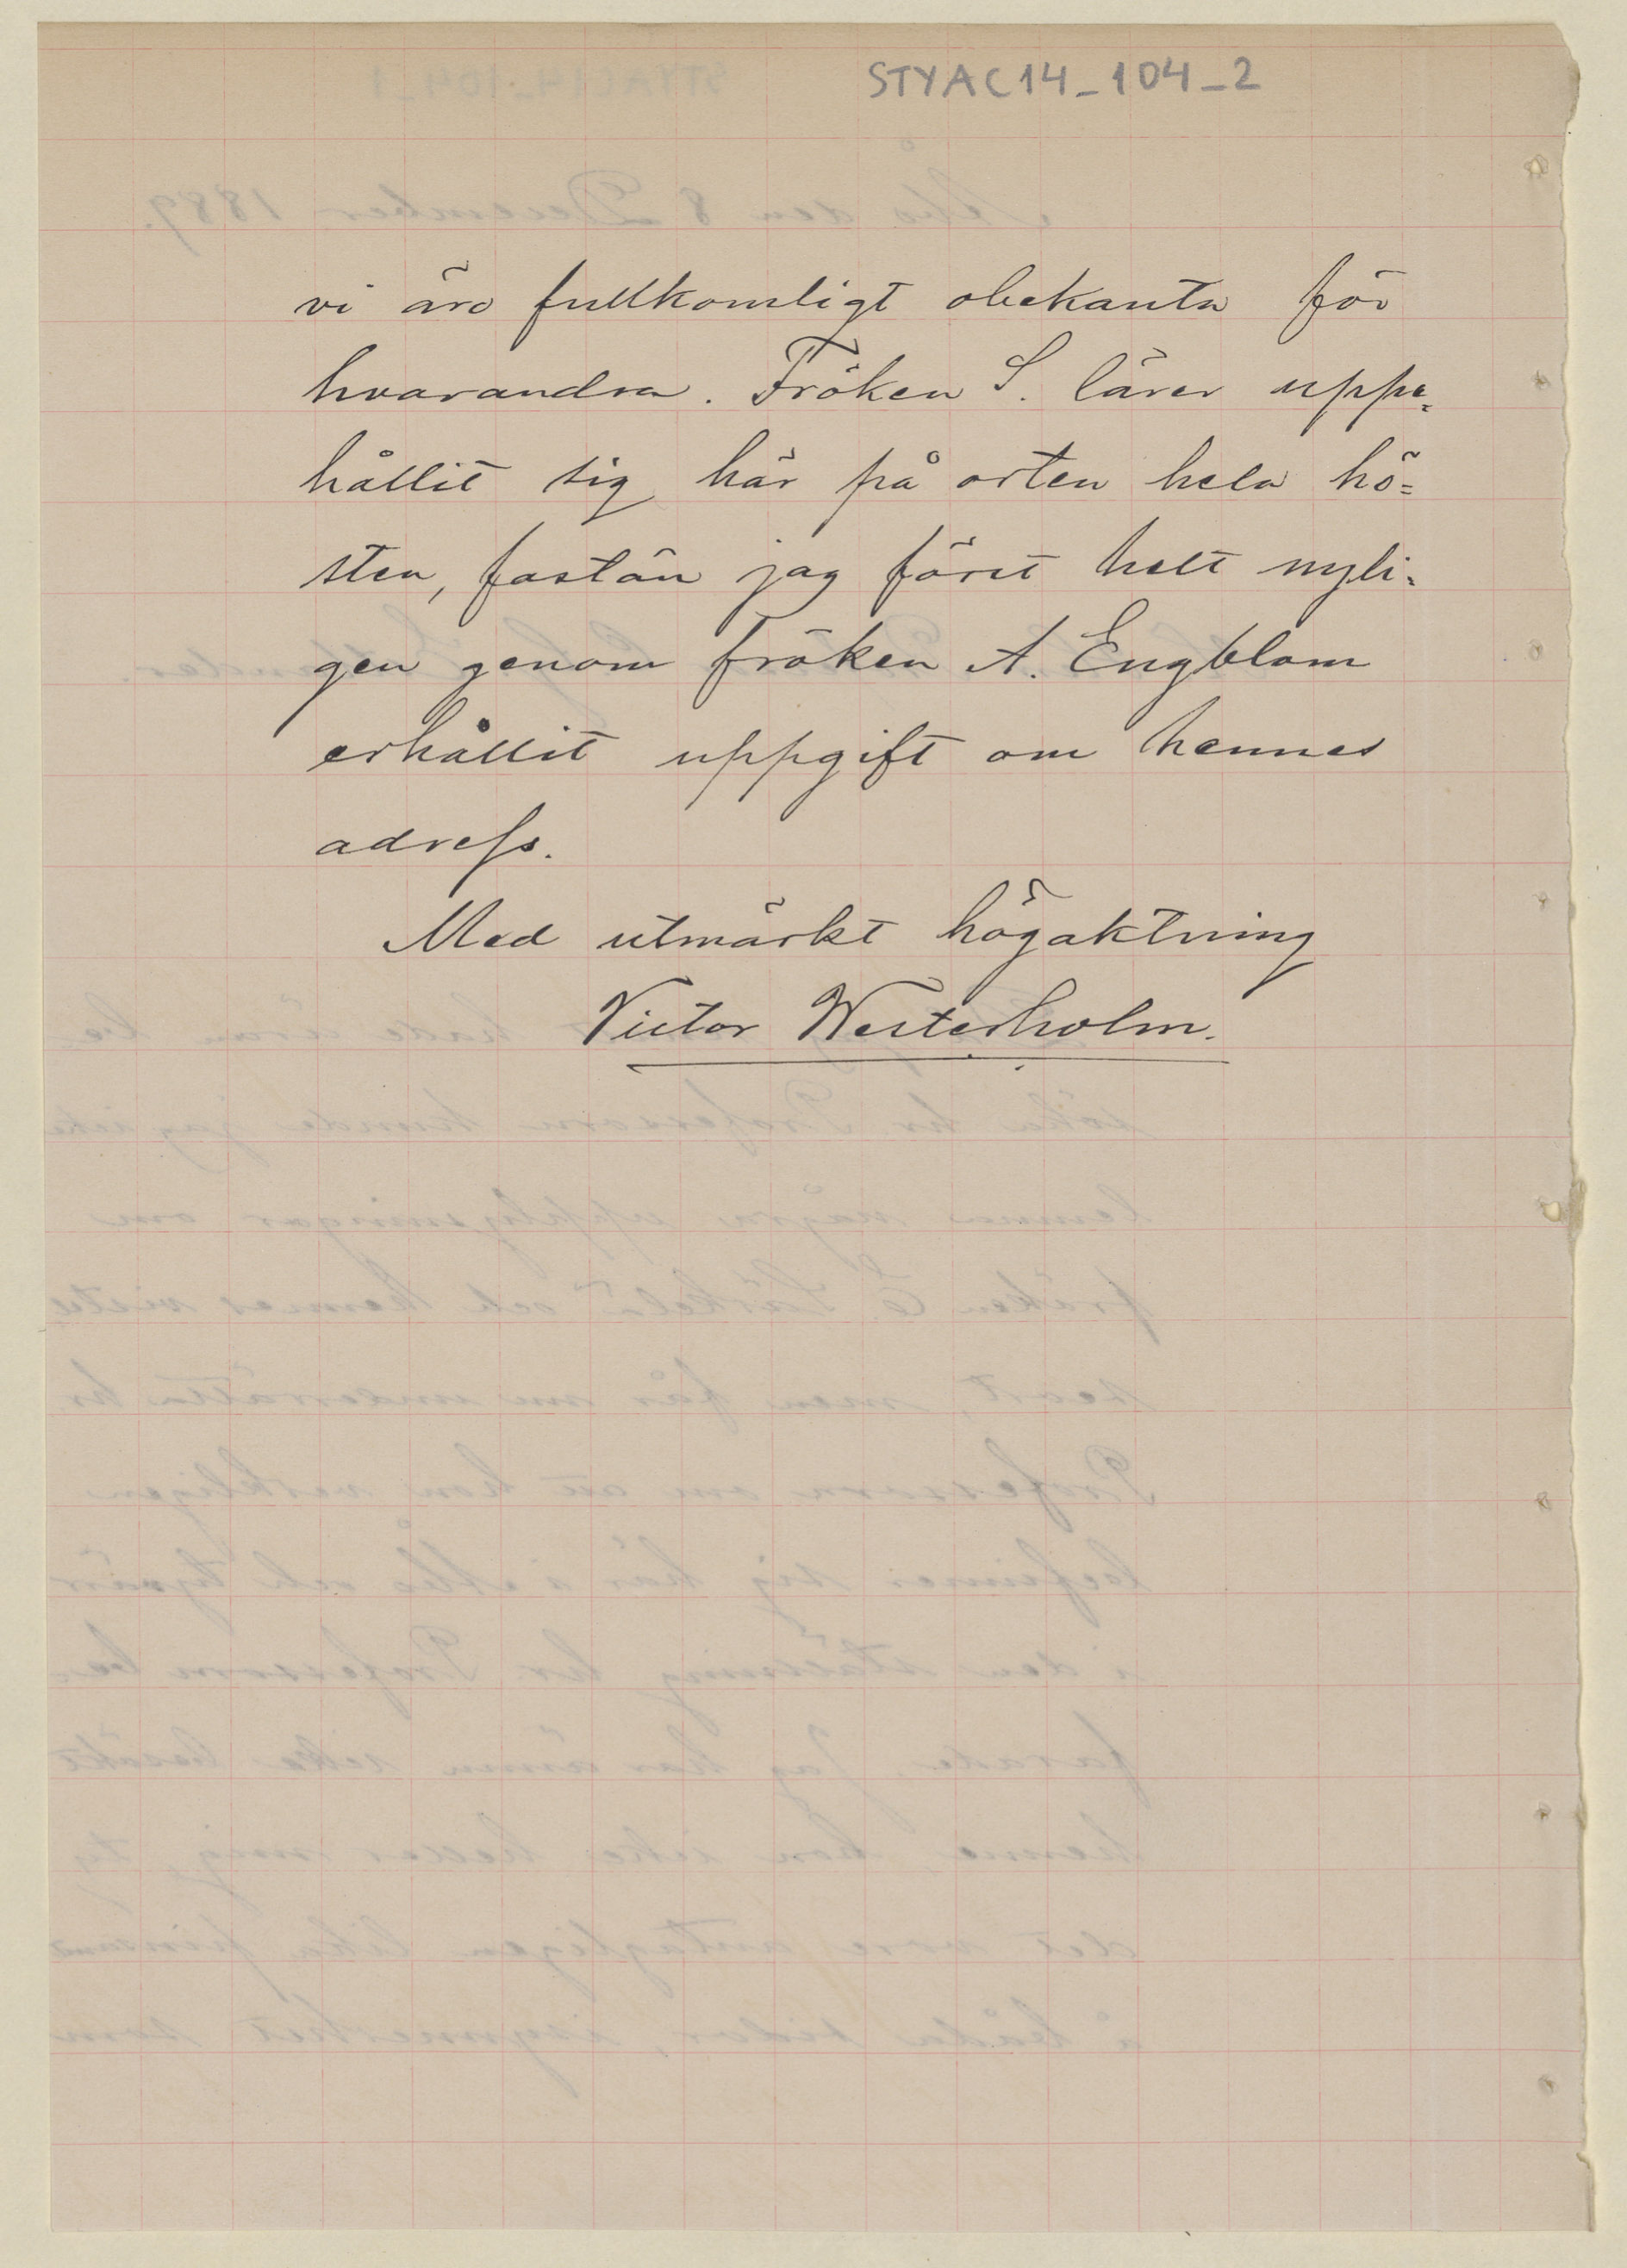 STYAC14_104_2
vi äro fullkomligt obekanta för
hvarandra. Fröken S. lärer uppe=
hållit sig här på orten hela hö=
sten, fastän jag först helt nyli=
gen genom fröken A. Engblom
erhållit uppgift om hennes
adress.
Med utmärkt högaktning
Victor Westerholm.